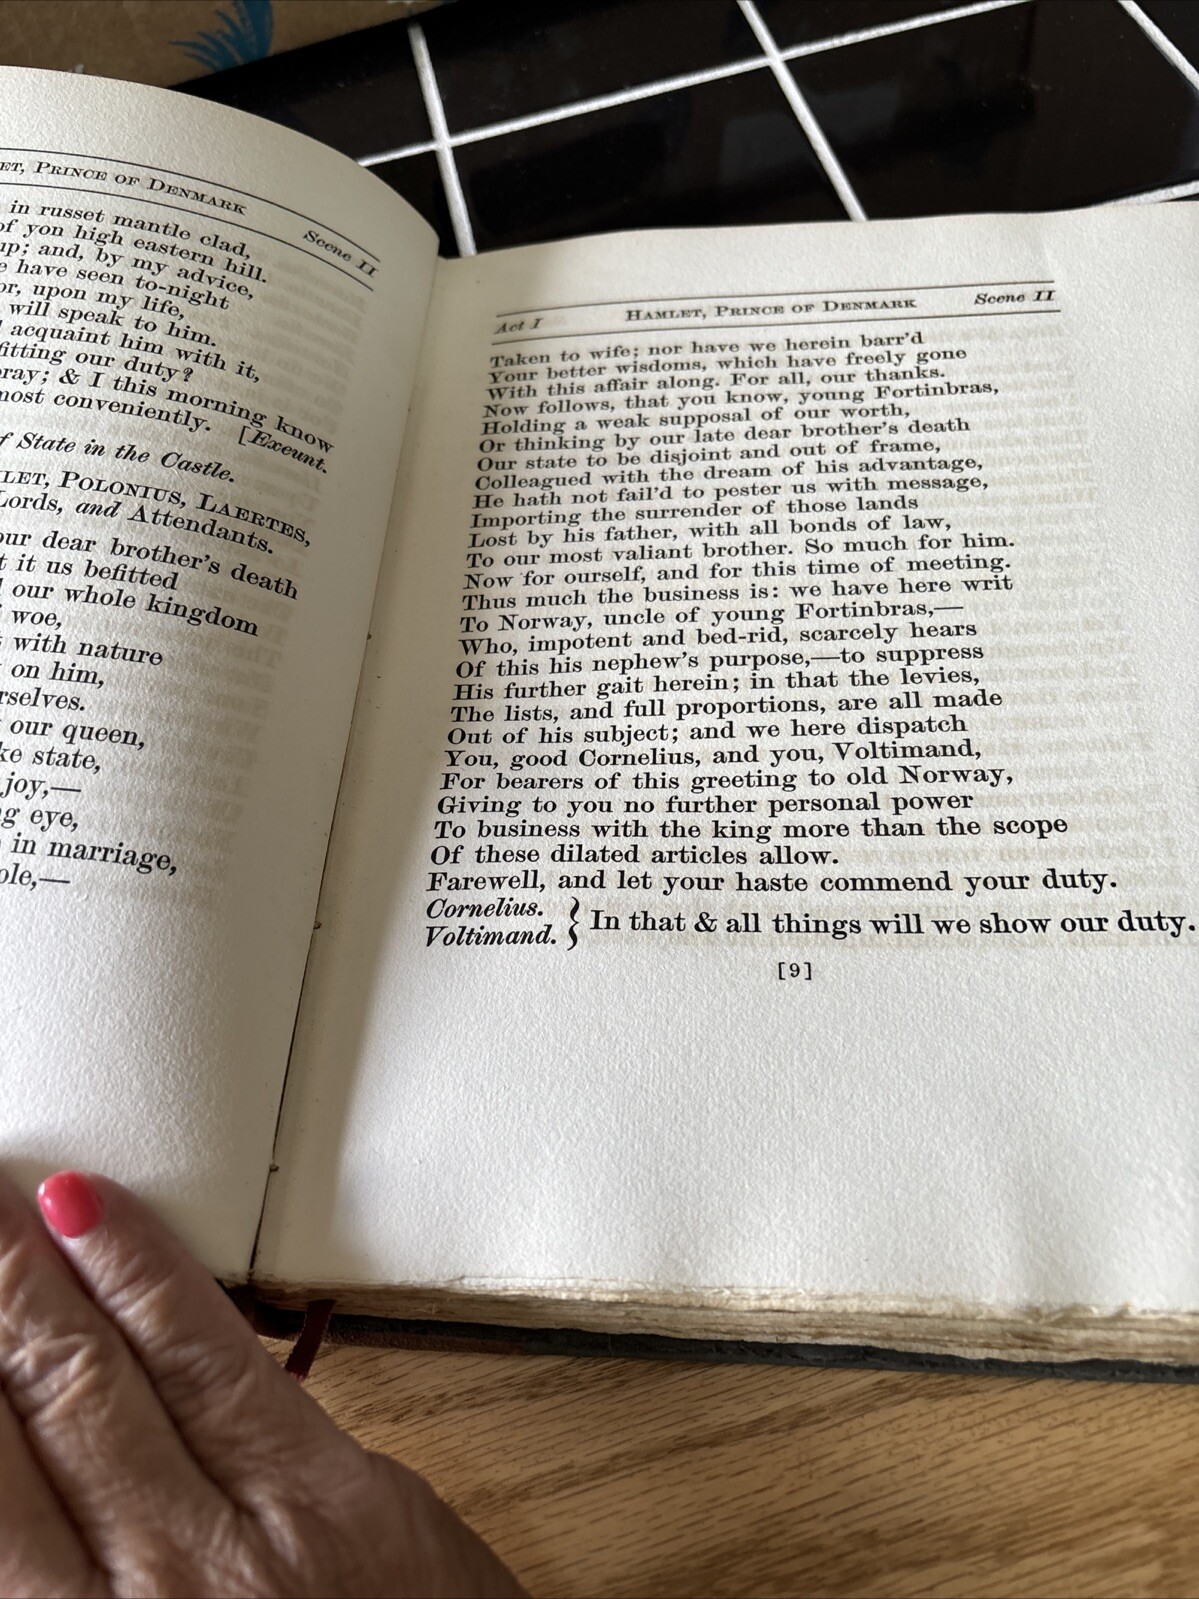 ET, PRINCE OF DENMARK
Scene II
in russet mantle clad,
of yon high eastern hill.
up; and, by my advice,
e have seen to-night
or, upon my life,
will speak to him.
acquaint him with it,
fitting our duty?
ray; & I this morning know
most conveniently. [Exeunt.
f State in the Castle.
LET, POLONIUS, LAERTES,
Lords, and Attendants.
our dear brother's death
t it us befitted
our whole kingdom
woe,
with nature
on him,
rselves.
our queen,
ke state,
joy,—
g eye,
in marriage,
ole,—
Act I HAMLET, PRINCE OF DENMARK Scene II
Taken to wife; nor have we herein barr'd
Your better wisdoms, which have freely gone
With this affair along. For all, our thanks.
Now follows, that you know, young Fortinbras,
Holding a weak supposal of our worth,
Or thinking by our late dear brother's death
Our state to be disjoint and out of frame,
Colleagued with the dream of his advantage,
He hath not fail'd to pester us with message,
Importing the surrender of those lands
Lost by his father, with all bonds of law,
To our most valiant brother. So much for him.
Now for ourself, and for this time of meeting.
Thus much the business is: we have here writ
To Norway, uncle of young Fortinbras,—
Who, impotent and bed-rid, scarcely hears
Of this his nephew's purpose,—to suppress
His further gait herein; in that the levies,
The lists, and full proportions, are all made
Out of his subject; and we here dispatch
You, good Cornelius, and you, Voltimand,
For bearers of this greeting to old Norway,
Giving to you no further personal power
To business with the king more than the scope
Of these dilated articles allow.
Farewell, and let your haste commend your duty.
Cornelius.
Voltimand. } In that & all things will we show our duty.
[9]